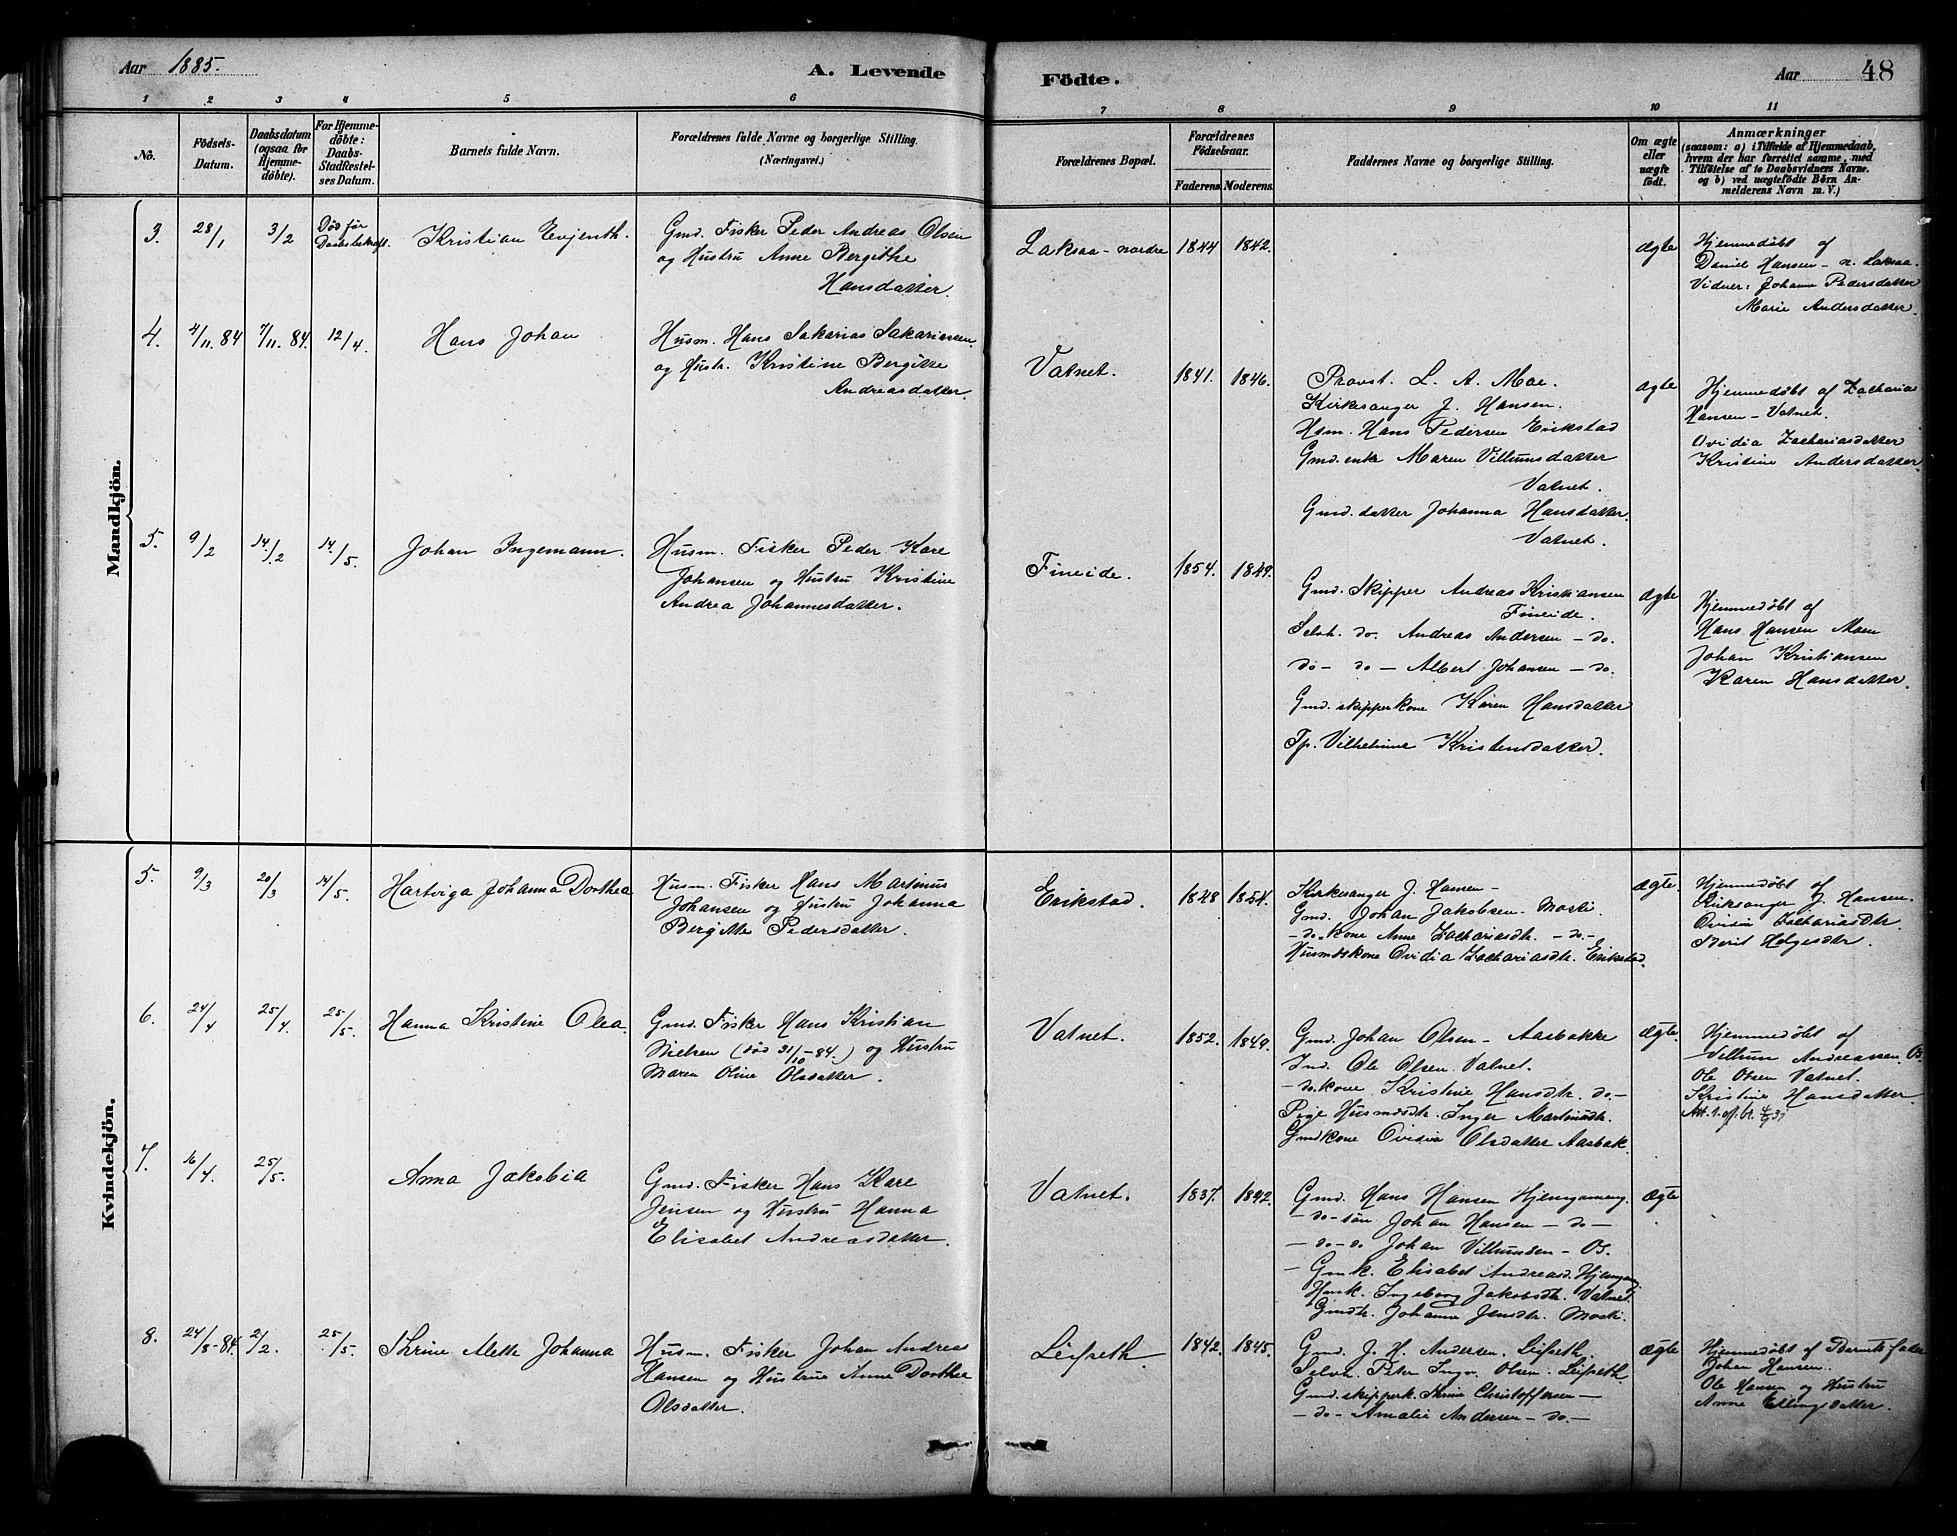 Aar 1885.
A. Levende
Födte.
Aar
48
1 2 3 4 5 6 7 8 9 10 11
No.
Födsels-
Datum.
Daabsdatum
(ogsaa for
Hjemme-
döbte).
For Hjemme-
döbte:
Daabs-
Stadfæstel-
ses Datum.
Barnets fulde Navn.
Forældrenes fulde Navne og borgerlige Stilling.
(Næringsvei.)
Forældrenes Bopæl.
Forældrenes
Födselsaar.
Faderens. Moderens.
Faddernes Navne og borgerlige Stilling.
Om ægte
eller
uægte
födt.
Anmærkninger
(saasom: a) i Tilfælde af Hjemmedaab,
hvem der har forrettet samme, med
Tilföielse af to Daabsvidners Navne.
og b) ved uægtefödte Börn An-
melderens Navn m. V.)
Mandkjön.
3. 28/1 3/2
Død før
Daabsbekræft.
Kristian Evjenth.
Gmd. Fisker Peder Andreas Olsen
og Hustru Anne Bergithe
Hansdatter.
Laksaa - nordre 1844 1842.
ægte
Hjemmedøbt af
Daniel Hansen - n. Laksaa.
Vidner: Johanna Pedersdatter
Marie Andersdatter.
4. 4/11 84 7/11. 84. 12/4.
Hans Johan
Husm. Hans Sakarias Sakariassen
og Hustr. Kristine Bergitte
Andreasdatter.
Vatnet. 1841. 1846.
Provst. L. A. Moe.
Kirkesanger J. Hansen.
Hsm. Hans Pedersen Erikstad
Gmd. enke Maren Villumsdatter
Vatnet.
Gmd. datter Johanna Hansdatter.
Vatnet.
ægte
Hjemmedøbt af Zacharias
Hansen - Vatnet.
Ovidia Zachariasdatter
Kristine Andersdatter.
5. 9/2 14/2 14/5.
Johan Ingemann.
Husm. Fisker Peder Kare
Johansen og Hustru Kristine
Andrea Johannesdatter.
Fineide. 1854. 1849.
Gmd. Skipper Andreas Kristiansen
Fineide.
Selvh. do. Andreas Andersen - do.
do - do - Albert Johansen - do.
Gmd. skipperkone Karen Hansdatter
Tp. Vilhelmine Kristensdatter.
ægte
Hjemmedøbt af
Hans Hansen Moen
Johan Kristiansen
Karen Hansdatter.
Kvindekjön.
5. 9/3 20/3 14/5.
Hartviga Johanna Dorthea
Husm. Fisker Hans Martinus
Johansen og Hustru Johanna
Bergitte Pedersdatter.
Erikstad. 1848 1854.
Kirkesanger J. Hansen -
Gmd. Johan Jakobsen. Moski.
- do. kone Anne Zachariasdtr. - do -
Husmdskone Ovidia Zachariasdtr. Erikstad.
ægte
Hjemmedøbt af
Kirksanger J. Hansen.
Ovidia Zachariasdtr.
Berit Helgesdtr.
6. 24/4 25/4. 25/5.
Hanna Kristine Olea.
Gmd. Fisker Hans Kristian
Nielsen (død 31/10-84.) og Hustru
Maren Oline Olsdatter.
Vatnet. 1852. 1849.
Gmd. Johan Olsen - Aasbakke
Ind. Ole Olsen. Vatnet.
- do. kone Kristine Hansdtr. do -
Pige Husmdsdtr. Inger Martinsdtr.
Gmdkone Ovidia Olsdatter Aasbak.
ægte.
Hjemmedøbt af
Villum Andreassen. Os.
Ole Olsen Vatnet.
Kristine Hansdatter.
7. 16/4. 25/5.
Anna Jakobia
Gmd. Fisker Hans Kare
Jensen og Hustru Hanna
Elisabet Andreasdatter.
Vatnet. 1837. 1842.
Gmd. Hans Hansen Hjemgameng.
- do - søn Johan Hansen - do -
- do - do Johan Villumsen - Os.
- Gmk. Elisabet Andreasd. Hjemgam
Hsmk. Ingeborg Jakobsdtr. Vatnet.
Gmdtr. Johanna Jensdtr. Moski.
ægte
8. 24/8-84. 2/2. 25/5.
Thrine Alette Johanna
Husm. Fisker Johan Andreas
Hansen og Hustrue Anne Dorthea
Olsdatter.
Leifseth. 1842. 1845.
Gmd. J. H. Andersen. Leifseth.
Selvh. Peter Ingv. Olsen. Leifseth.
Gmd. skipperk. Thrine Christoffersen -
- do - Amalie Andersen - do. -
ægte
Hjemmedøbt af Barnets fader
Johan Hansen.
Ole Hansen og Hustru
Anne Ellingsdatter.